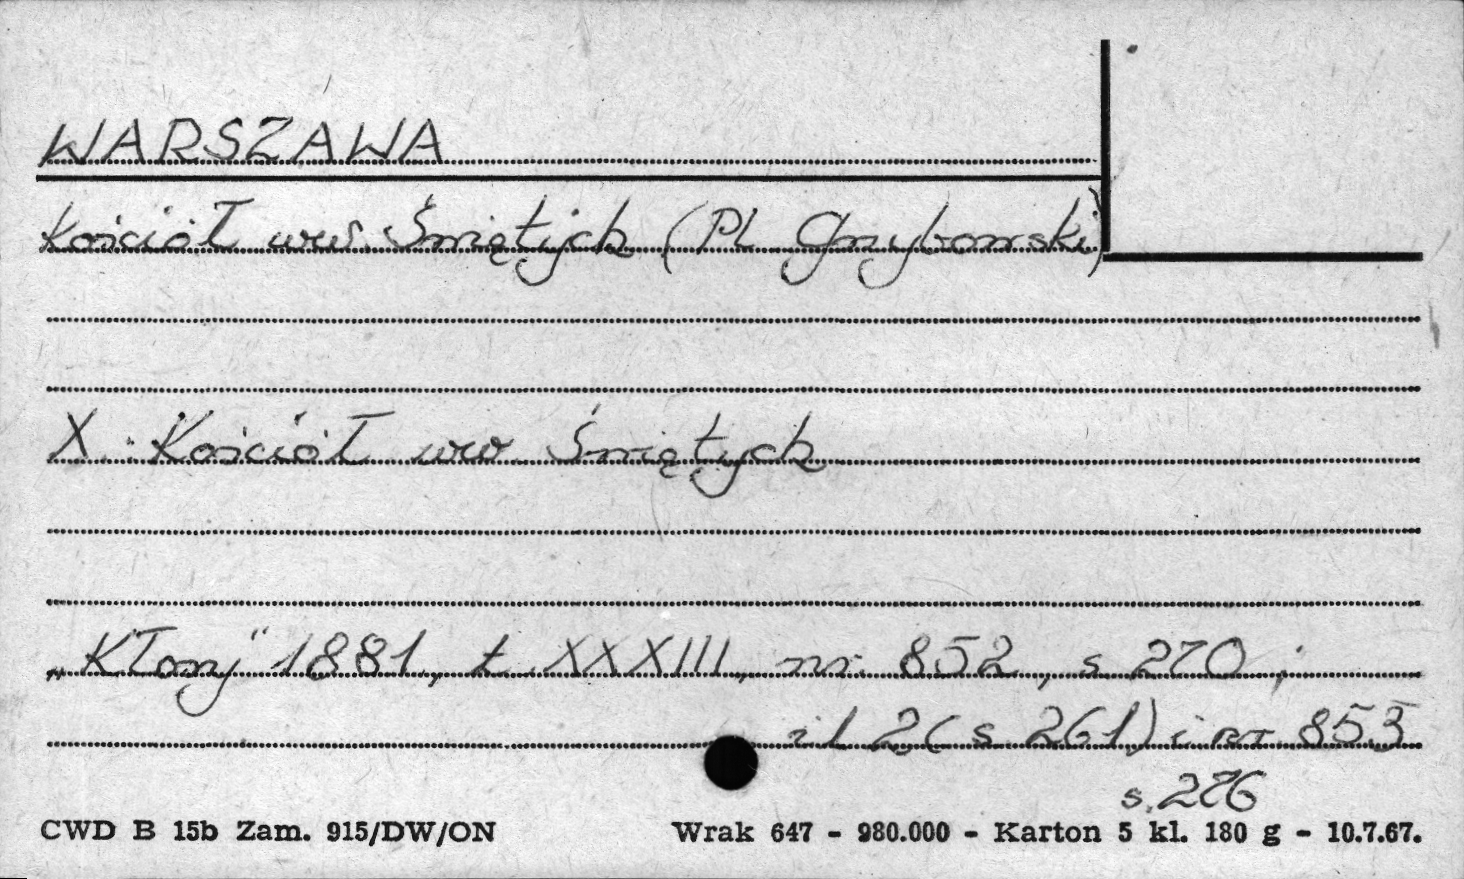 WARSZAWA
Kościół ww. Świętych (Pl. Grzybowski)
X : Kościół ww Świętych
„Kłosy" 1881, t. XXXIII, nr. 852, s. 270 ;
il 2 (s. 261) i nr 853
s. 276
CWD B 15b Zam. 915/DW/ON
Wrak 647 - 980.000 - Karton 5 kl. 180 g - 10.7.67.